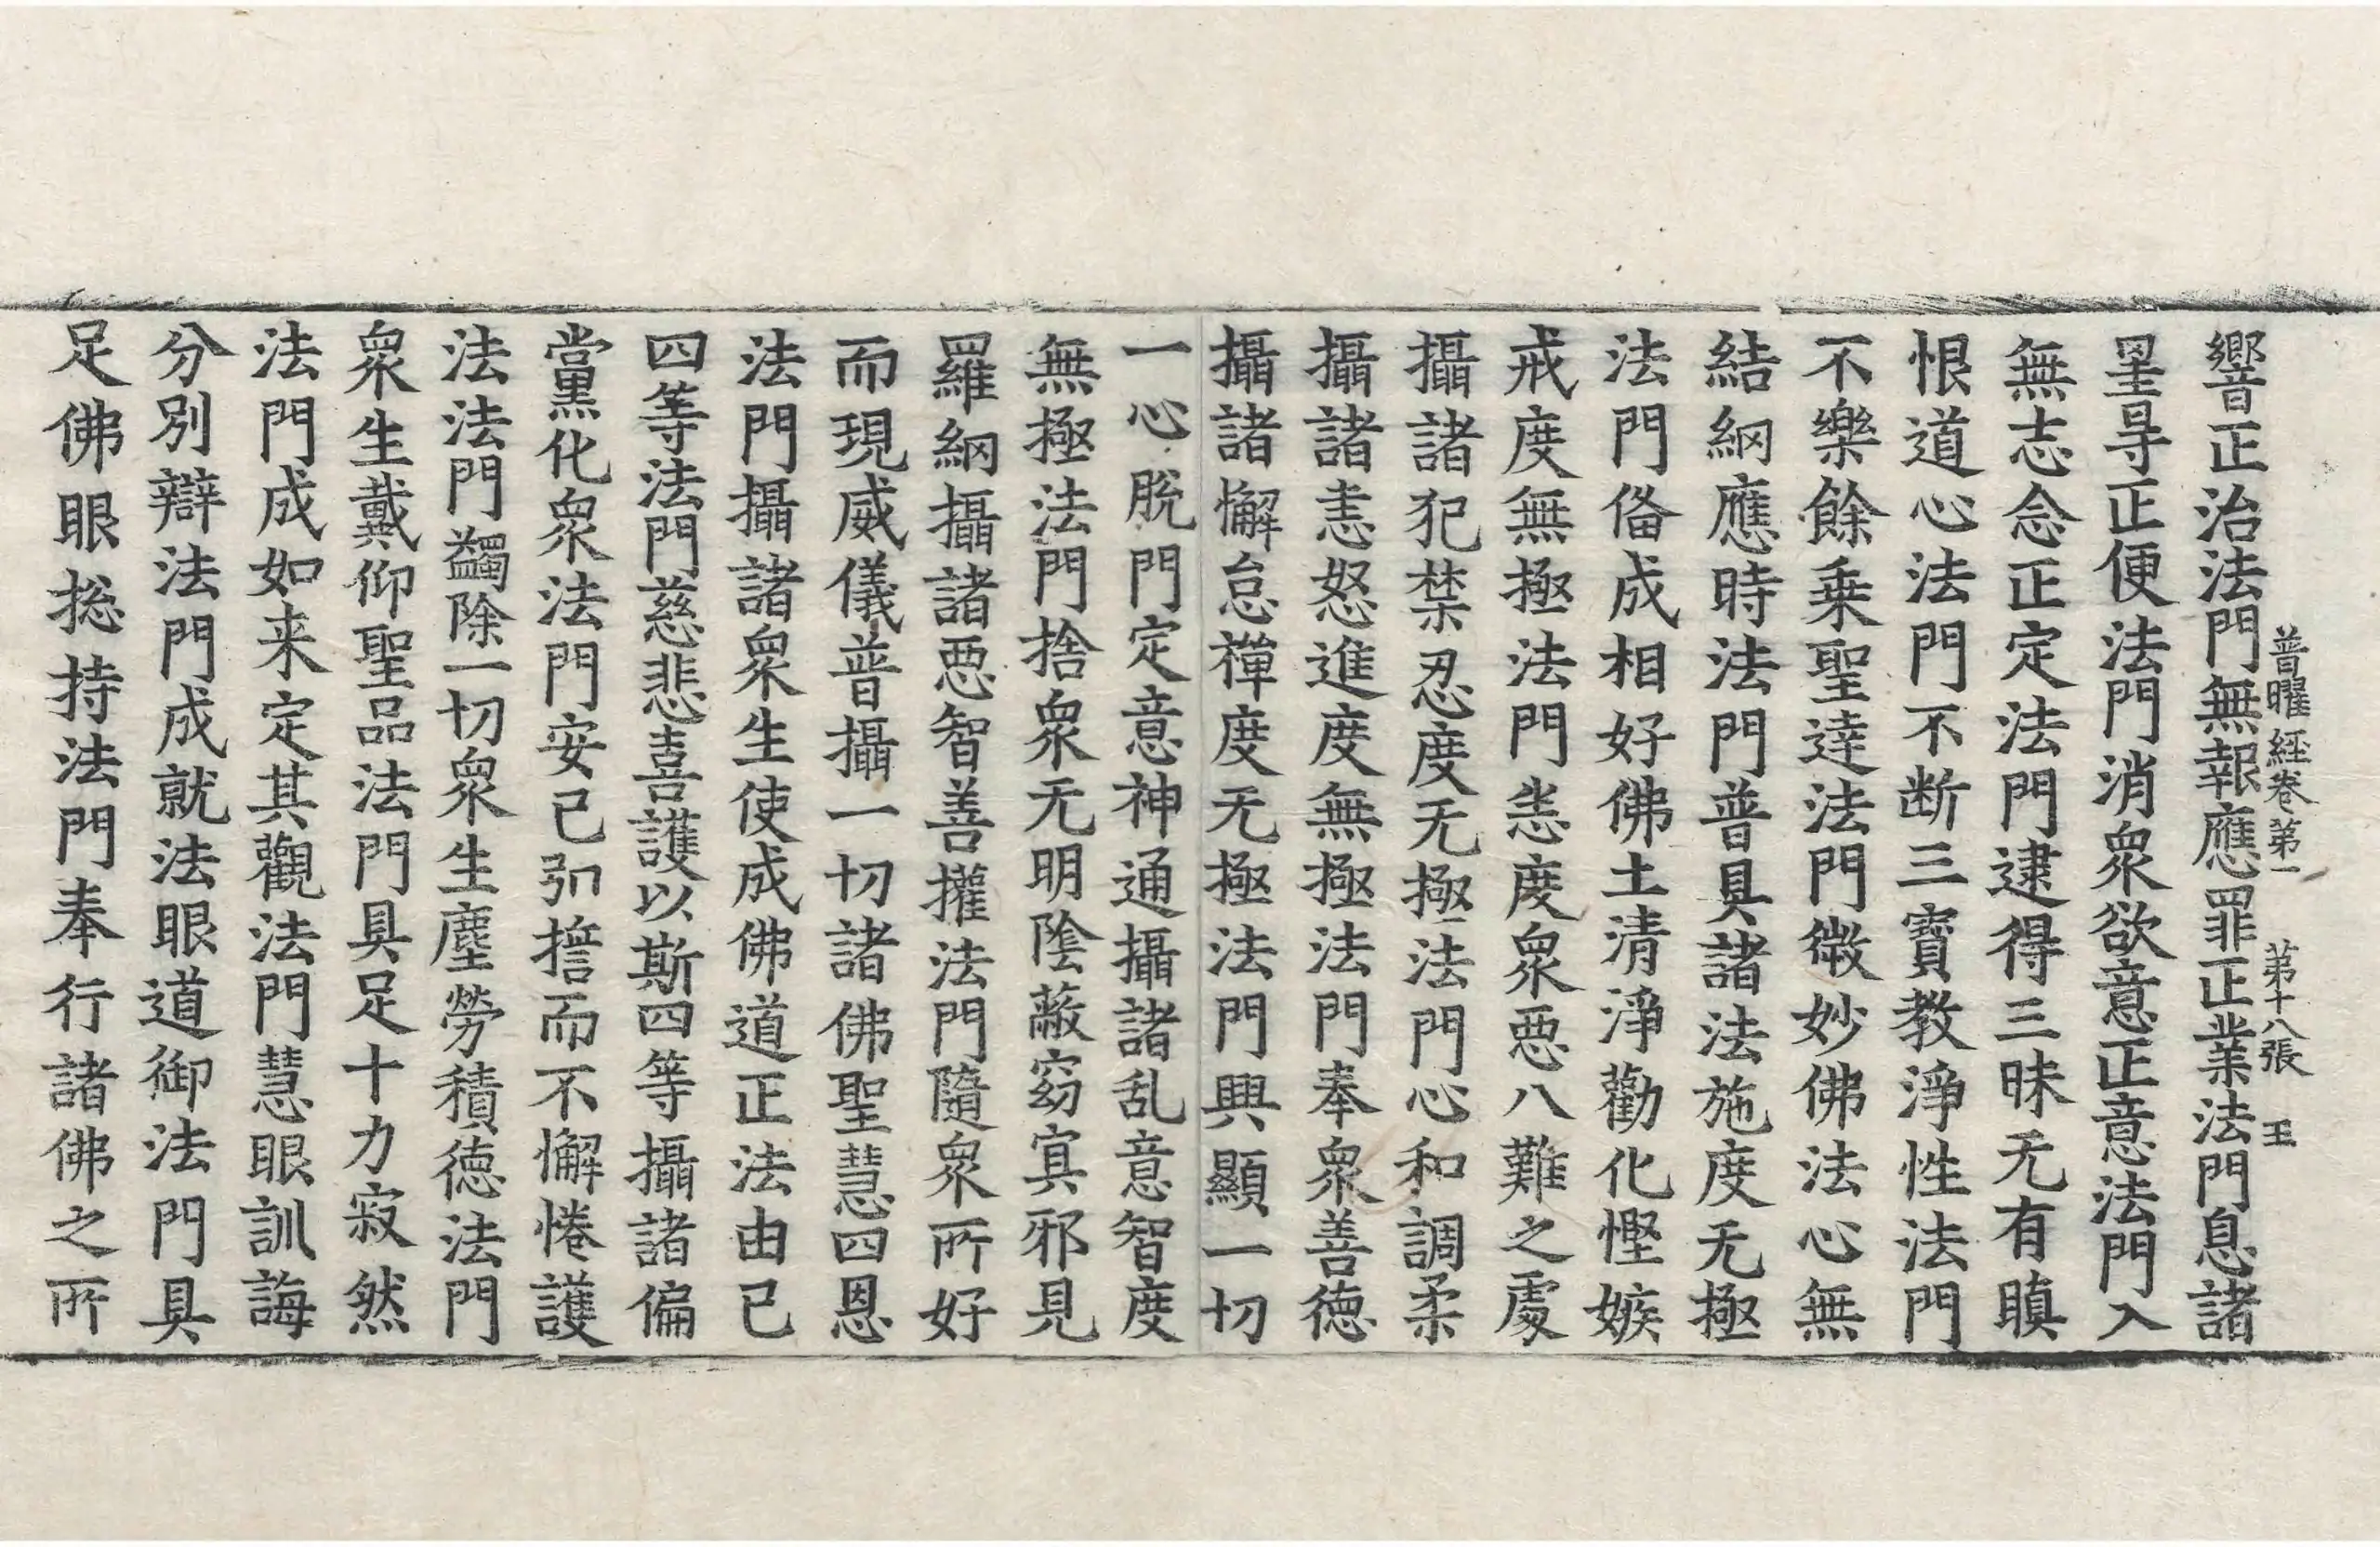 響正治法門無報應罪正業法門息諸
普曜經卷第一 第十八張 王
罣㝵正便法門消衆欲意正意法門入
無志念正定法門逮得三昧无有瞋
恨道心法門不断三寶教淨性法門
不樂餘乗聖達法門微妙佛法心無
結網應時法門普具諸法施度无極
法門俻成相好佛土清淨勸化慳嫉
戒度無極法門恙度衆惡八難之處
攝諸犯禁忍度无極法門心和調柔
攝諸恚怒進度無極法門奉衆善德
攝諸懈怠禪度无極法門興顯一切
一心脫門定意神通攝諸乱意智度
無極法門捨衆无明陰蔽窈冥邪見
羅網攝諸惡智善權法門隨衆所好
而現威儀普攝一切諸佛聖慧四恩
法門攝諸衆生使成佛道正法由已
四等法門慈悲喜護以斯四等攝諸偏
黨化衆法門安已弘誓而不懈惓護
法法門蠲除一切衆生塵勞積德法門
衆生戴仰聖品法門具足十力寂然
法門成如来定其觀法門慧眼訓誨
分別辯法門成就法眼道御法門具
足佛眼捴持法門奉行諸佛之所